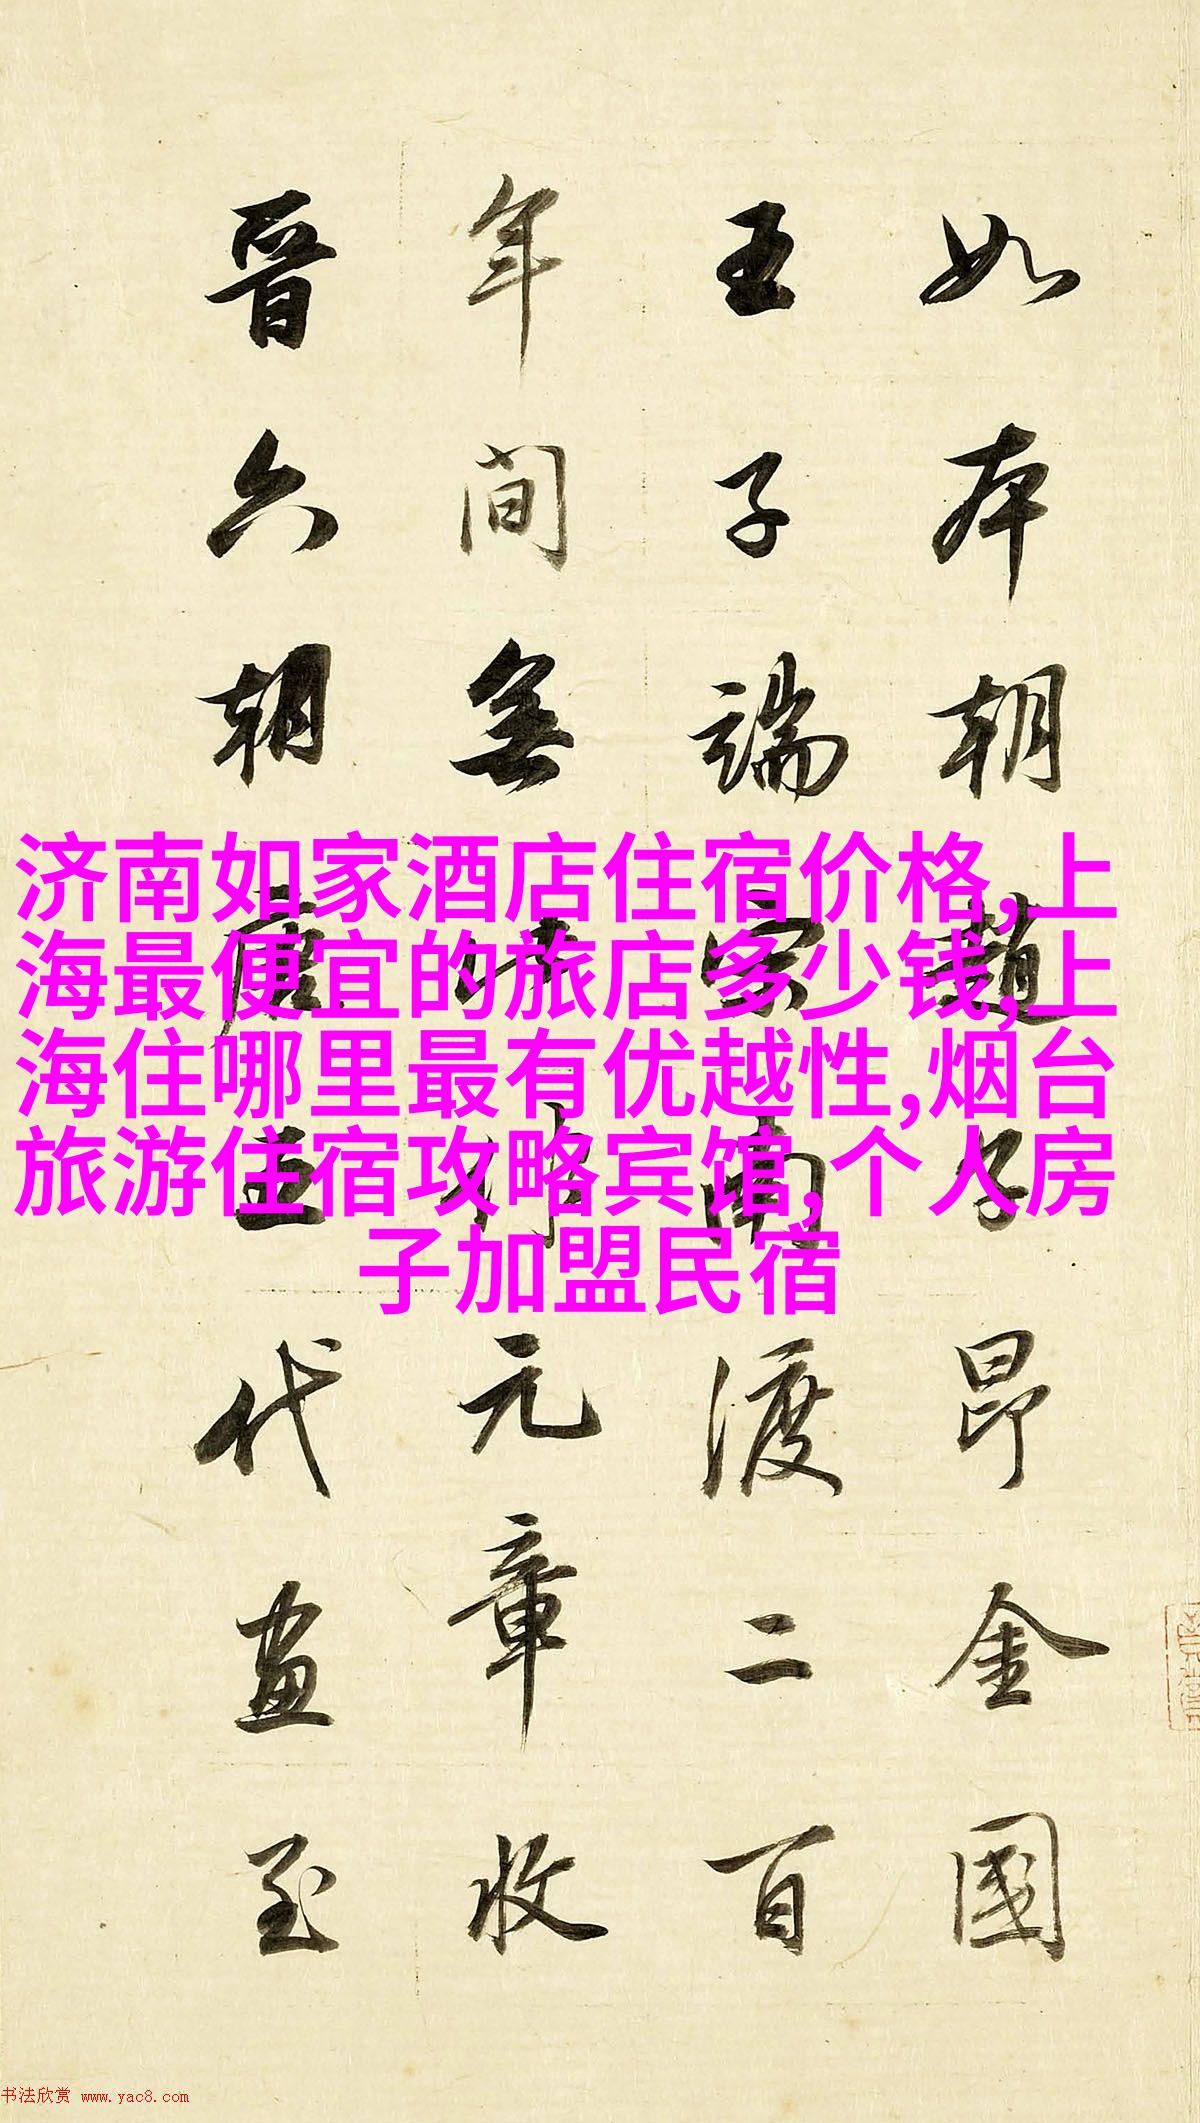 如本朝趙子昂金國
王子端宋南渡二百
年間無元章收
晉六朝唐五代畫至
济南如家酒店住宿价格,上
海最便宜的旅店多少钱,上
海住哪里最有优越性,烟台
旅游住宿攻略宾馆,个人房
子加盟民宿
书法欣赏 www.yac8.com